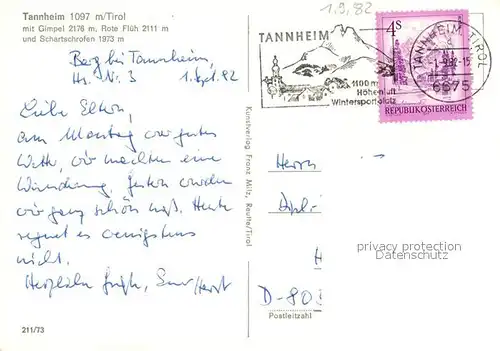 Tannheim 1097 m/Tirol
mit Gimpel 2176 m, Rote Flüh 2111 m
und Schartschrofen 1973 m
Berg bei Tannheim,
Hs. Nr. 3 1. Sept. 82
Liebe Eltern,
am Montag war gutes
Wetter, wir machten eine
Wanderung. Gestern wurden
wir ganz schön naß. Heute
regnet es wenigstens
nicht.
Herzliche Grüße,
211/73
Kunstverlag Franz Milz, Reutte/Tirol
1.9.82
TANNHEIM
1100 m
Höhenluft
Wintersportplatz
4 S
REPUBLIK ÖSTERREICH
TANNHEIM, TIROL
6675
Herrn
Dipl.-
H
D-803
Postleitzahl
privacy protection
VDM